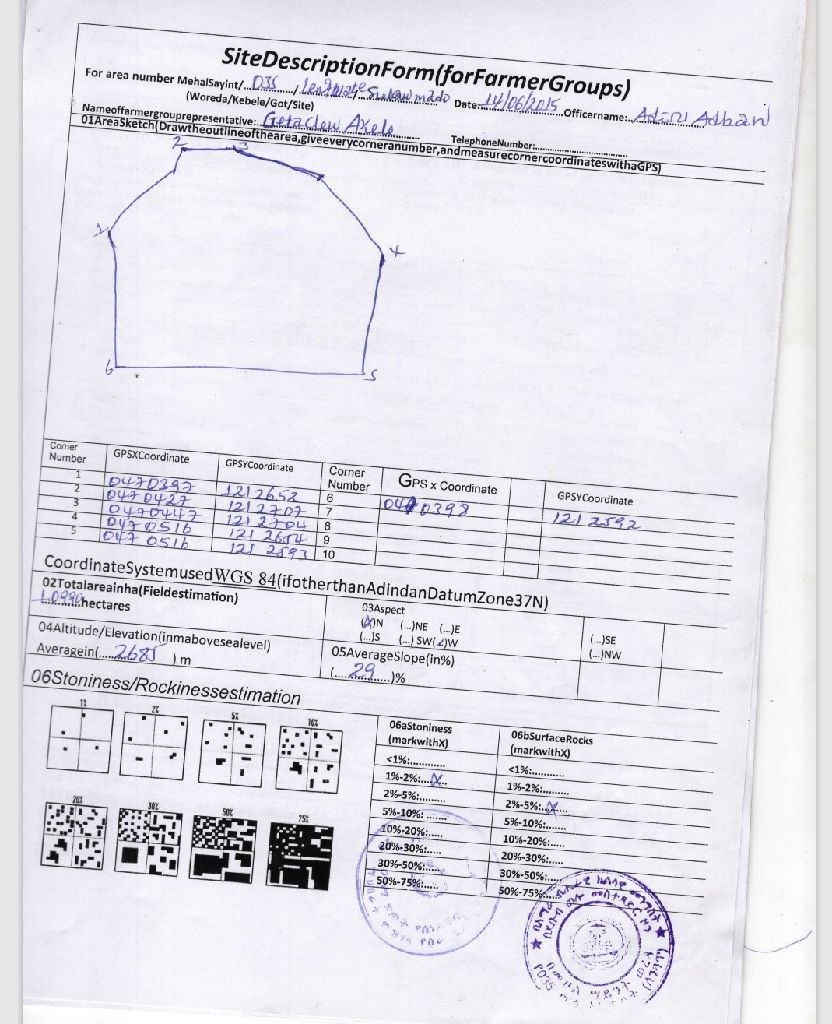 SiteDescriptionForm(forFarmerGroups)
For area number MehalSayint/...035.../
(Woreda/Kebele/Got/Site) Date:..14/06/2015..Officername:.
Nameoffarmergrouprepresentative:.Getachew
TelephoneNumber:...........................
01AreaSketch(Drawtheoutlineofthearea,giveeverycorneranumber,andmeasurecornercoordinateswithaGPS)
2 3
1 4
6 5
Corner Number GPSXCoordinate GPSYCoordinate Corner Number GPS x Coordinate GPSYCoordinate
1 0470397 1212652 6 0470398 1212592
2 0470427 1212707 7
3 0470447 1212704 8
4 0470516 1212654 9
5 0470516 1212593 10
CoordinateSystemusedWGS 84(ifotherthanAdindanDatumZone37N)
02Totalareainha(Fieldestimation)
1.0990.hectares
03Aspect
(X)N (...)NE (...)E (...)SE
(...)S (...) SW(X)W (...)NW
04Altitude/Elevation(inmabovesealevel)
Averagein(....2685...) m
05AverageSlope(in%)
(....29....)%
06Stoniness/Rockinessestimation
1% 2% 5% 10%
20% 30% 50% 75%
06aStoniness (markwithX) 06bSurfaceRocks (markwithX)
<1%:............ <1%:............
1%-2%:...X.. 1%-2%:......
2%-5%:...... 2%-5%:..X...
5%-10%:...... 5%-10%:.....
10%-20%:..... 10%-20%:....
20%-30%:..... 20%-30%:....
30%-50%:..... 30%-50%:....
50%-75%:..... 50%-75%:....